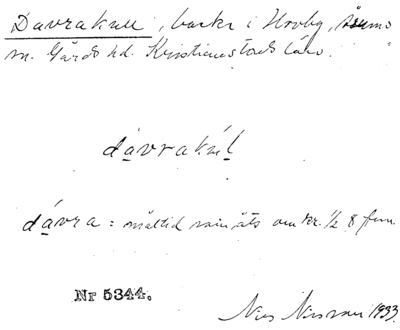 Davrakull, backe i Hovby, Åsumo
sn. Gärds hd. Kristianstads län.
dávrakúl
dávra = måltid som äts om kr. 1/2 8 f.m.
Nr 5344.
Nils Nilsson 1933.